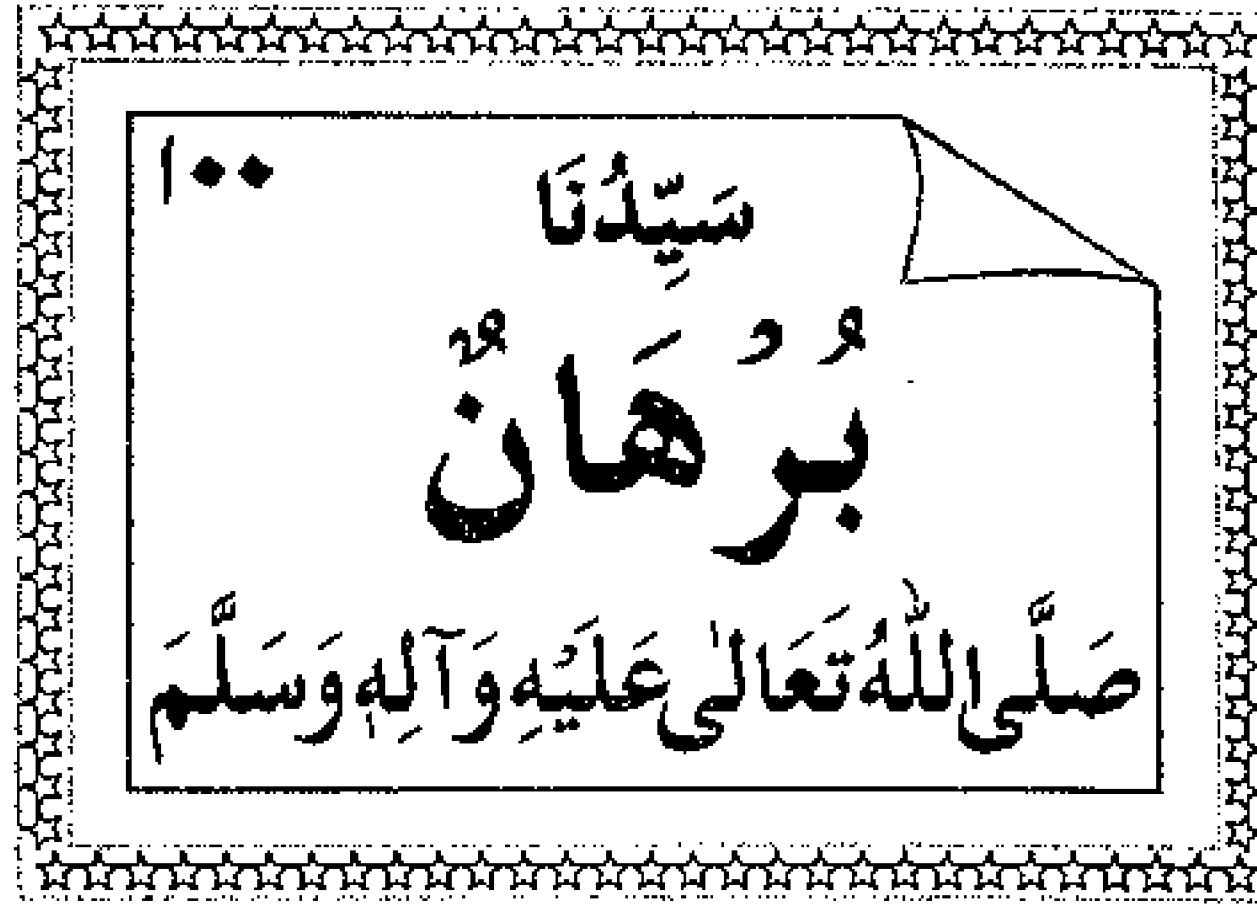 ١٠٠
سَيِّدُنَا
بُرْهَانٌ
صَلَّى اللّٰهُ تَعَالٰى عَلَيْهِ وَآلِهٖ وَسَلَّمَ